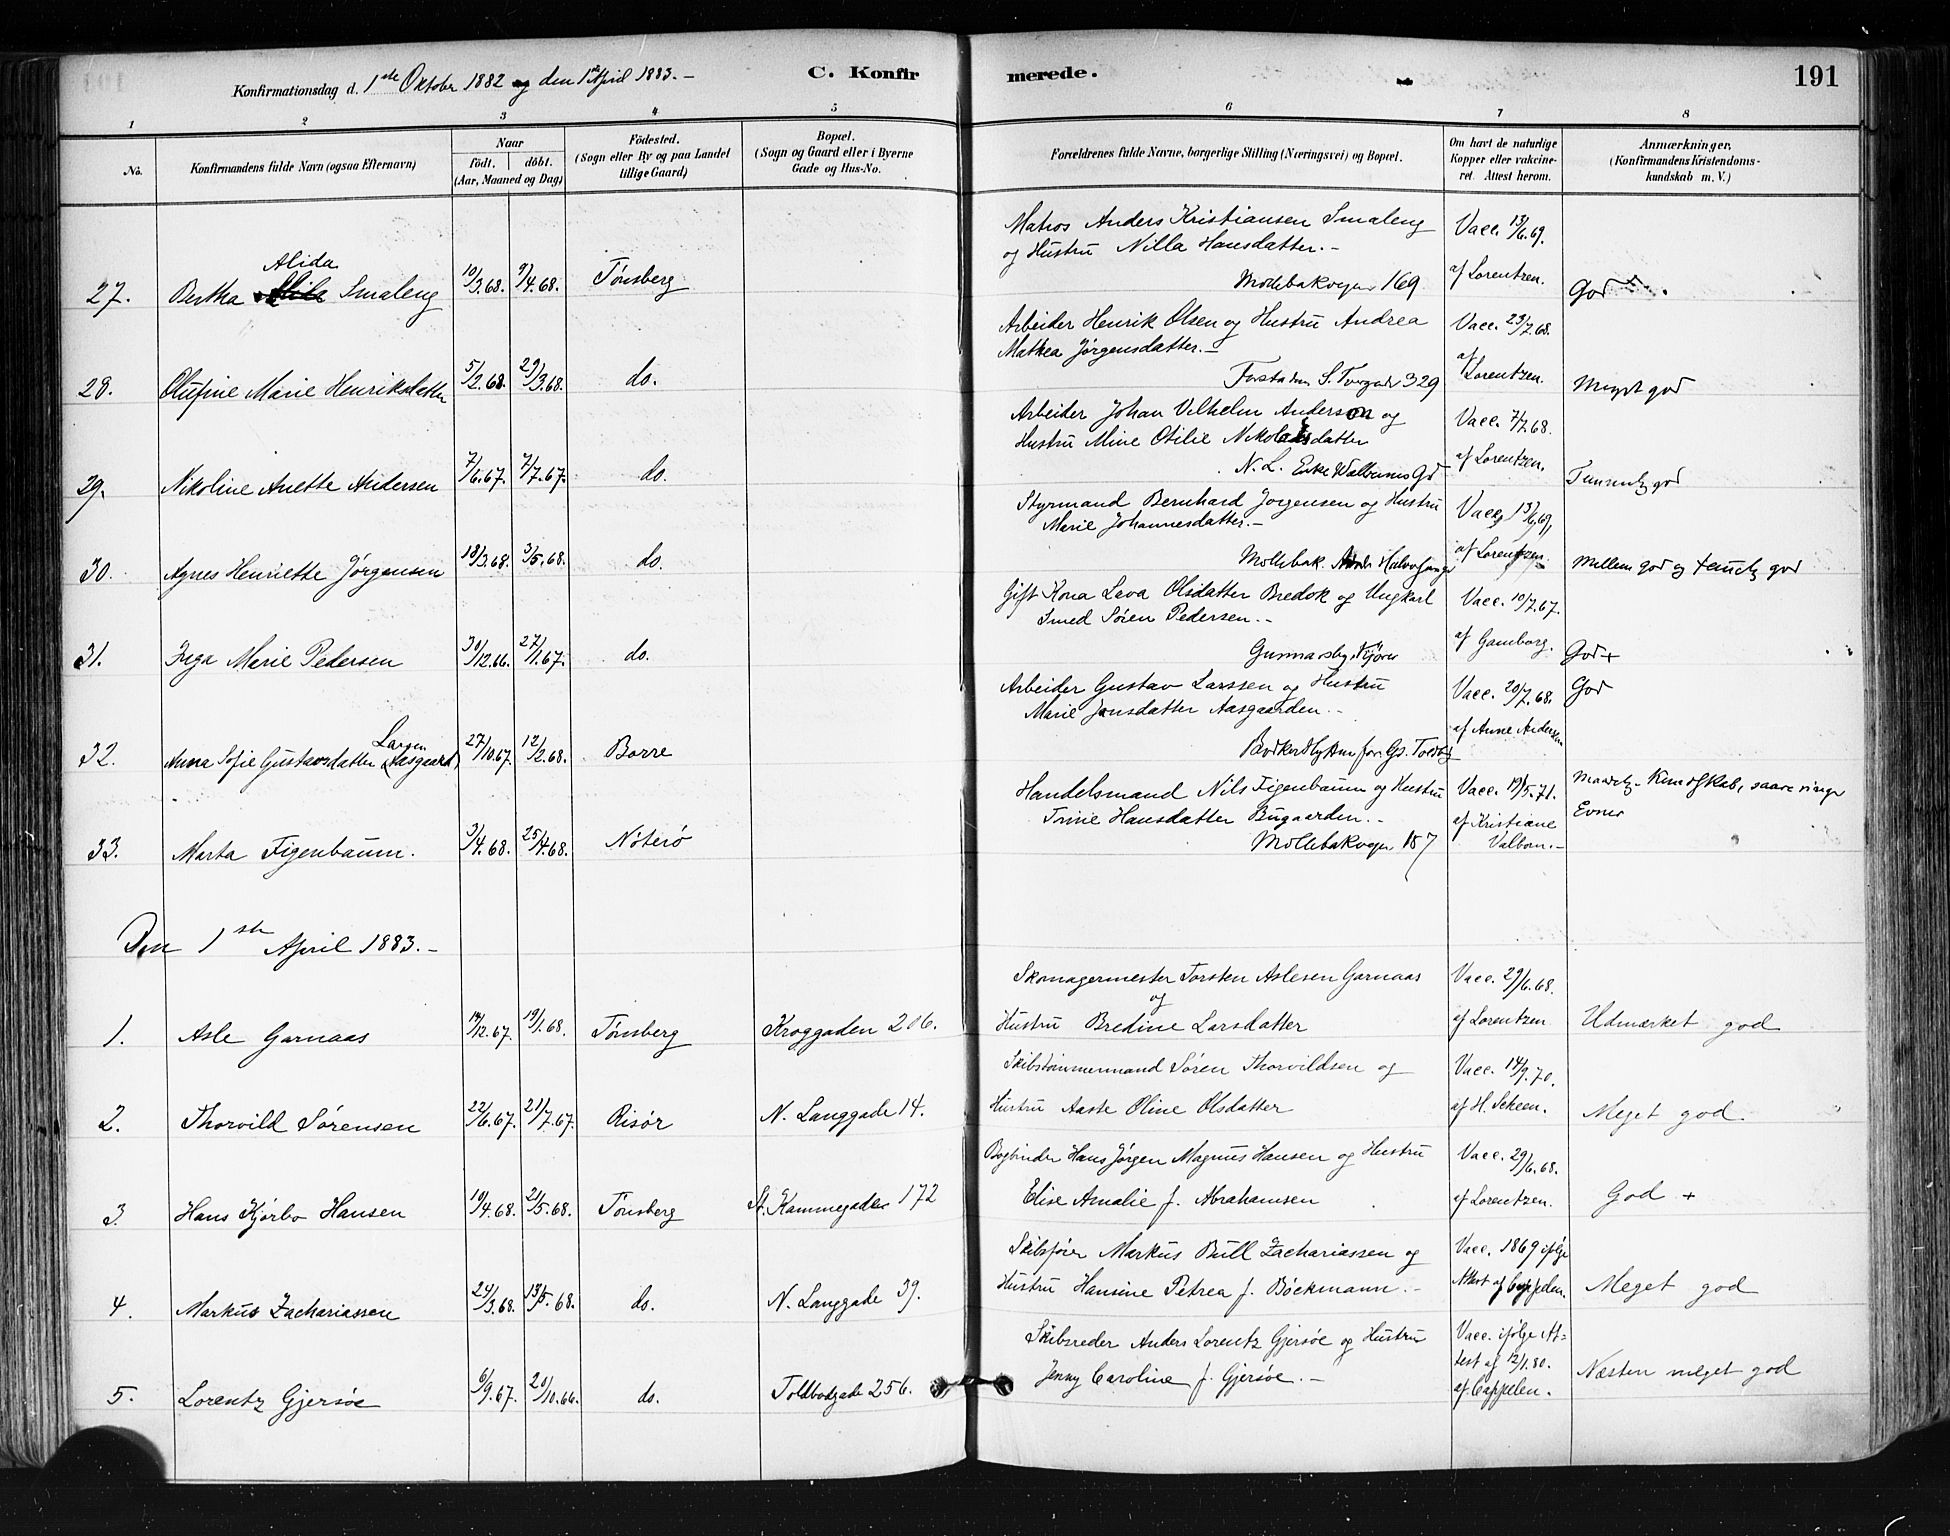 Konfirmationsdag d. 1ste Oktober 1882 og den 1ste April 1883. –
C. Konfirmerede.
191
1 2 3 4 5 6 7 8
No.
Konfirmandens fulde Navn (ogsaa Efternavn)
Naar
födt. döbt.
(Aar, Maaned og Dag)
Födested.
(Sogn eller By og paa Landet
tillige Gaard)
Bopæl.
(Sogn og Gaard eller i Byerne
Gade og Hus-No.
Forældrenes fulde Navne, borgerlige Stilling (Næringsvei) og Bopæl.
Om havt de naturlige
Kopper eller vakcine-
ret. Attest herom.
Anmærkninger,
(Konfirmandens Kristendoms-
kundskab m. V.)
Matros Anders Kristiansen Smaleng
og Hustru Nilla Hansdatter. –
Vacc. 13/6.69.
af Lorentzen.
Alida
27. Bertha Smaleng 10/3.68. 9/4.68. Tønsberg
Møllebakvejen 169
God
Arbeider Henrik Olsen og Hustru Andrea
Mathea Jørgensdatter. –
Vacc. 23/7.68.
af Lorentzen.
28. Olufine Marie Henriksdatter 5/2.68. 29/3.68. do.
Forstaden S. 329
Meget god
Arbeider Johan Vilhelm Anderson og
Hustru Mine Otilie Nikolaisdatter
Vacc. 7/7.68.
af Lorentzen.
29. Nikoline Anette Andersen 7/6.67. 7/7.67. do.
N. L. Enke
god
Styrmand Bernhard Jørgensen og Hustru
Marie Johannesdatter. –
Vacc. 13/6.69
af Lorentzen
30. Agnes Henriette Jørgensen 18/3.68. 3/5.68. do.
Møllebak.
Mellem god og god
Gift Kona Lava Olsdatter Bredok og Ungkarl
Smed Søren Pedersen. –
Vacc. 10/7.67.
af Gamborg.
31. Inga Marie Pedersen 30/12.66. 27/1.67. do.
God +
Arbeider Gustav Larssen og Hustru
Marie Jonsdatter Aasgaarden. –
Vacc. 20/7.68.
af Anne Andersen
God
Larsen
32. Anna Sofie Gustavsdatter (Aasgaard) 27/10.67. 12/2.68. Borre
Handelsmand Nils Figenbaum og Hustru
Trine Hansdatter Bugaarden. –
Vacc. 19/5.71.
af Kristiane
Valbom. –
Kundskab, saare ringe
Evner
33. Marta Figenbaum. 3/4.68. 25/4.68. Nøterø
Møllebakvejen 187
Den 1ste April 1883. –
Skomagermester Torsten Aslesen Garnaas
og
Hustru Bredine Larsdatter
Vacc. 29/6.68.
af Lorentzen
1. Asle Garnaas 14/12.67. 19/1.68. Tønsberg Kroggaden 206.
Udmærket god
Skibstømmermand Søren Thorvildsen og
Hustru Aaste Oline Olsdatter
Vacc. 14/9.70.
af H. Scheen.
2. Thorvild Sørensen 22/6.67. 21/7.67. Risør N. Langgade 14.
Meget god.
Bogbinder Hans Jørgen Magnus Hansen og Hustru
Elise Amalie f. Abrahamsen
Vacc. 29/6.68.
af Lorentzen.
3. Hans Kjørbo Hansen 19/4.68. 21/5.68. Tønsberg 172
God +
Skibsfører Markus Bull Zachariassen og
Hustru Hansine Petrea f. Bøckmann. –
Vacc. 1869 ifølge
Attest af Cappelen.
4. Markus Zachariassen 24/3.68. 13/5.68. do. N. Langgade 39.
Meget god
Skibsreder Anders Lorentz Gjersøe og Hustru
Jenny Caroline f. Gjersøe. –
Vacc. ifølge At-
test af 12/1.80.
af Cappelen.
5. Lorentz Gjersøe 6/9.67. 20/10.66. do. Toldbodgade 256.
Næsten meget god